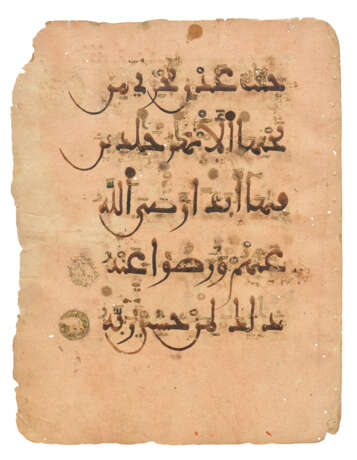 جنت عدن تجري من
تحتها الأنهر خلدين
فيها أبدا رضي الله
عنهم ورضوا عنه
ذلك لمن خشي ربه